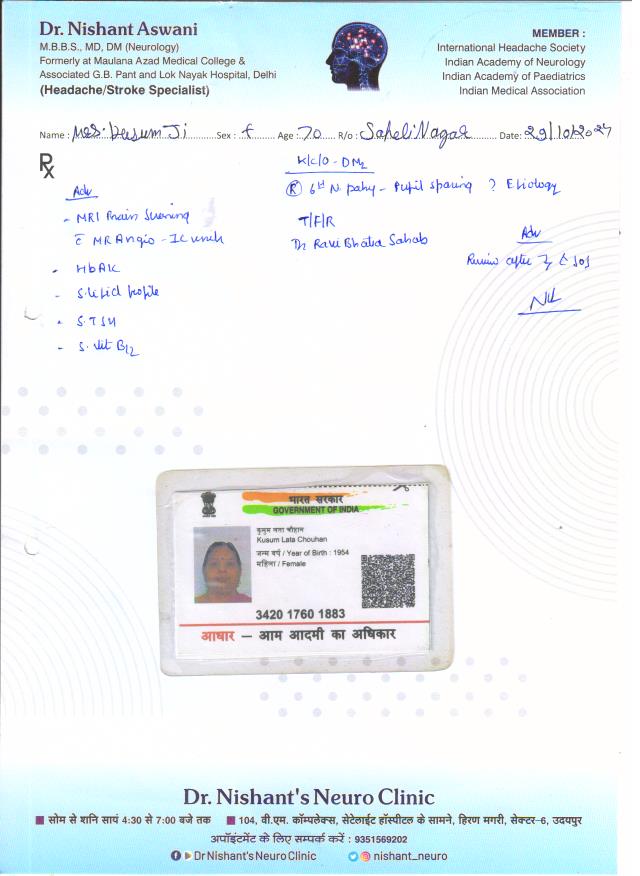 Dr. Nishant Aswani
M.B.B.S., MD, DM (Neurology)
Formerly at Maulana Azad Medical College &
Associated G.B. Pant and Lok Nayak Hospital, Delhi
(Headache/Stroke Specialist)
MEMBER :
International Headache Society
Indian Academy of Neurology
Indian Academy of Paediatrics
Indian Medical Association
Name : Mrs. Kusum Ji Sex : f Age : 70 R/o : Saheli Nagar Date: 29/10/2024
Rx
Adv
- MRI Brain
MR Angio -
- HbA1c
- S. Lipid profile
- S. TSH
- S. Vit B12
K/c/o - DM2
(R) 6th N. palsy - Pupil sparing ? Etiology
T/F/R
Dr Ravi Bhatia Sahab
Adv
Review after SOS
भारत सरकार
GOVERNMENT OF INDIA
कुसुम लता चौहान
Kusum Lata Chouhan
जन्म वर्ष / Year of Birth : 1954
महिला / Female
3420 1760 1883
आधार — आम आदमी का अधिकार
Dr. Nishant's Neuro Clinic
सोम से शनि सायं 4:30 से 7:00 बजे तक 104, वी.एम. कॉम्पलेक्स, सेटेलाईट हॉस्पीटल के सामने, हिरण मगरी, सेक्टर-6, उदयपुर
अपॉइंटमेंट के लिए सम्पर्क करें : 9351569202
Dr Nishant's Neuro Clinic nishant_neuro